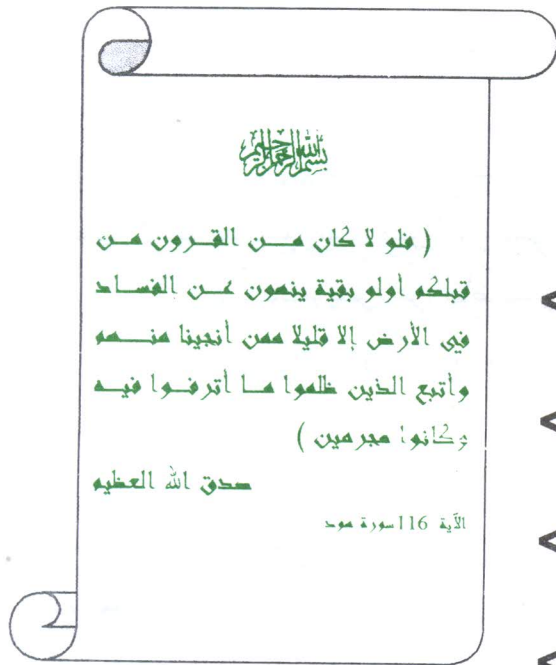 بسم الله الرحمن الرحيم
( فلو لا كان من القرون من
قبلكم أولو بقية ينهون عن الفساد
في الأرض إلا قليلا ممن أنجينا منهم
وأتبع الذين ظلموا ما أترفوا فيه
وكانوا مجرمين )
صدق الله العظيم
الآية 116 سورة هود